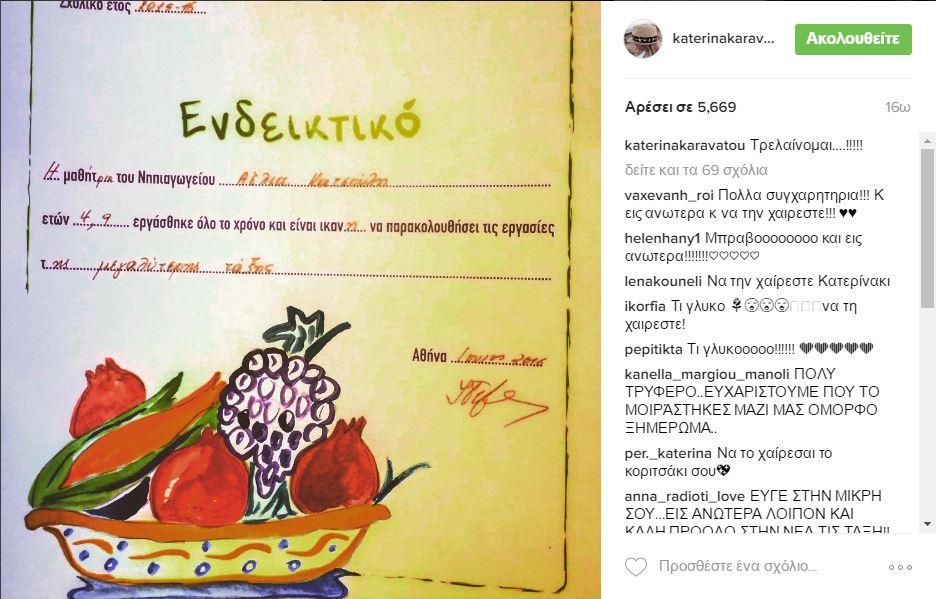 Σχολικό έτος 2015-16
Ενδεικτικό
Η μαθήτρια του Νηπιαγωγείου
ετών 4,9 εργάσθηκε όλο το χρόνο και είναι ικανη να παρακολουθήσει τις εργασίες
τ ης μεγαλύτερης τάξης
Αθήνα Ιούνιος 2016
katerinakarav...
Ακολουθείτε
Αρέσει σε 5,669
16ω
katerinakaravatou Τρελαίνομαι....!!!!!
δείτε και τα 69 σχόλια
vaxevanh_roi Πολλα συγχαρητηρια!!! Κ
εις ανωτερα κ να την χαιρεστε!!! ♥♥
helenhany1 Μπραβοοοοοοοο και εις
ανωτερα!!!!!!!♡♡♡♡♡
lenakouneli Να την χαίρεστε Κατερίνακι
ikorfia Τι γλυκο να τη
χαιρεστε!
pepitikta Τι γλυκοοοοο!!!!!! ♥♥♥♥♥
kanella_margiou_manoli ΠΟΛΥ
ΤΡΥΦΕΡΟ..ΕΥΧΑΡΙΣΤΟΥΜΕ ΠΟΥ ΤΟ
ΜΟΙΡΆΣΤΗΚΕΣ ΜΑΖΙ ΜΑΣ ΟΜΟΡΦΟ
ΞΗΜΕΡΩΜΑ..
per._katerina Να το χαίρεσαι το
κοριτσάκι σου
anna_radioti_love ΕΥΓΕ ΣΤΗΝ ΜΙΚΡΗ
ΣΟΥ...ΕΙΣ ΑΝΩΤΕΡΑ ΛΟΙΠΟΝ ΚΑΙ
ΚΑΛΗ ΠΡΟΟΔΟ ΣΤΗΝ ΝΕΑ ΤΙΣ ΤΑΞΗ!!
Προσθέστε ένα σχόλιο...